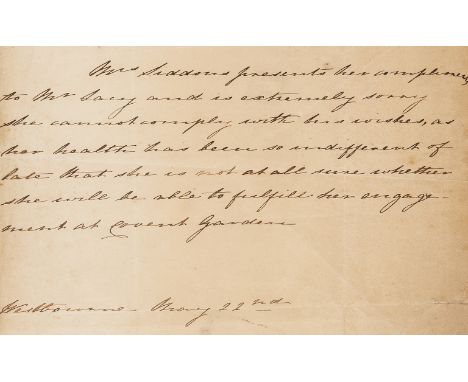 Mrs Siddons presents her compliments
to Mr Lacy and is extremely sorry
she cannot comply with his wishes, as
her health has been so indifferent of
late that she is not at all sure whether
she will be able to fulfill her engage-
ment at Covent Garden
Westbourne - May 22nd